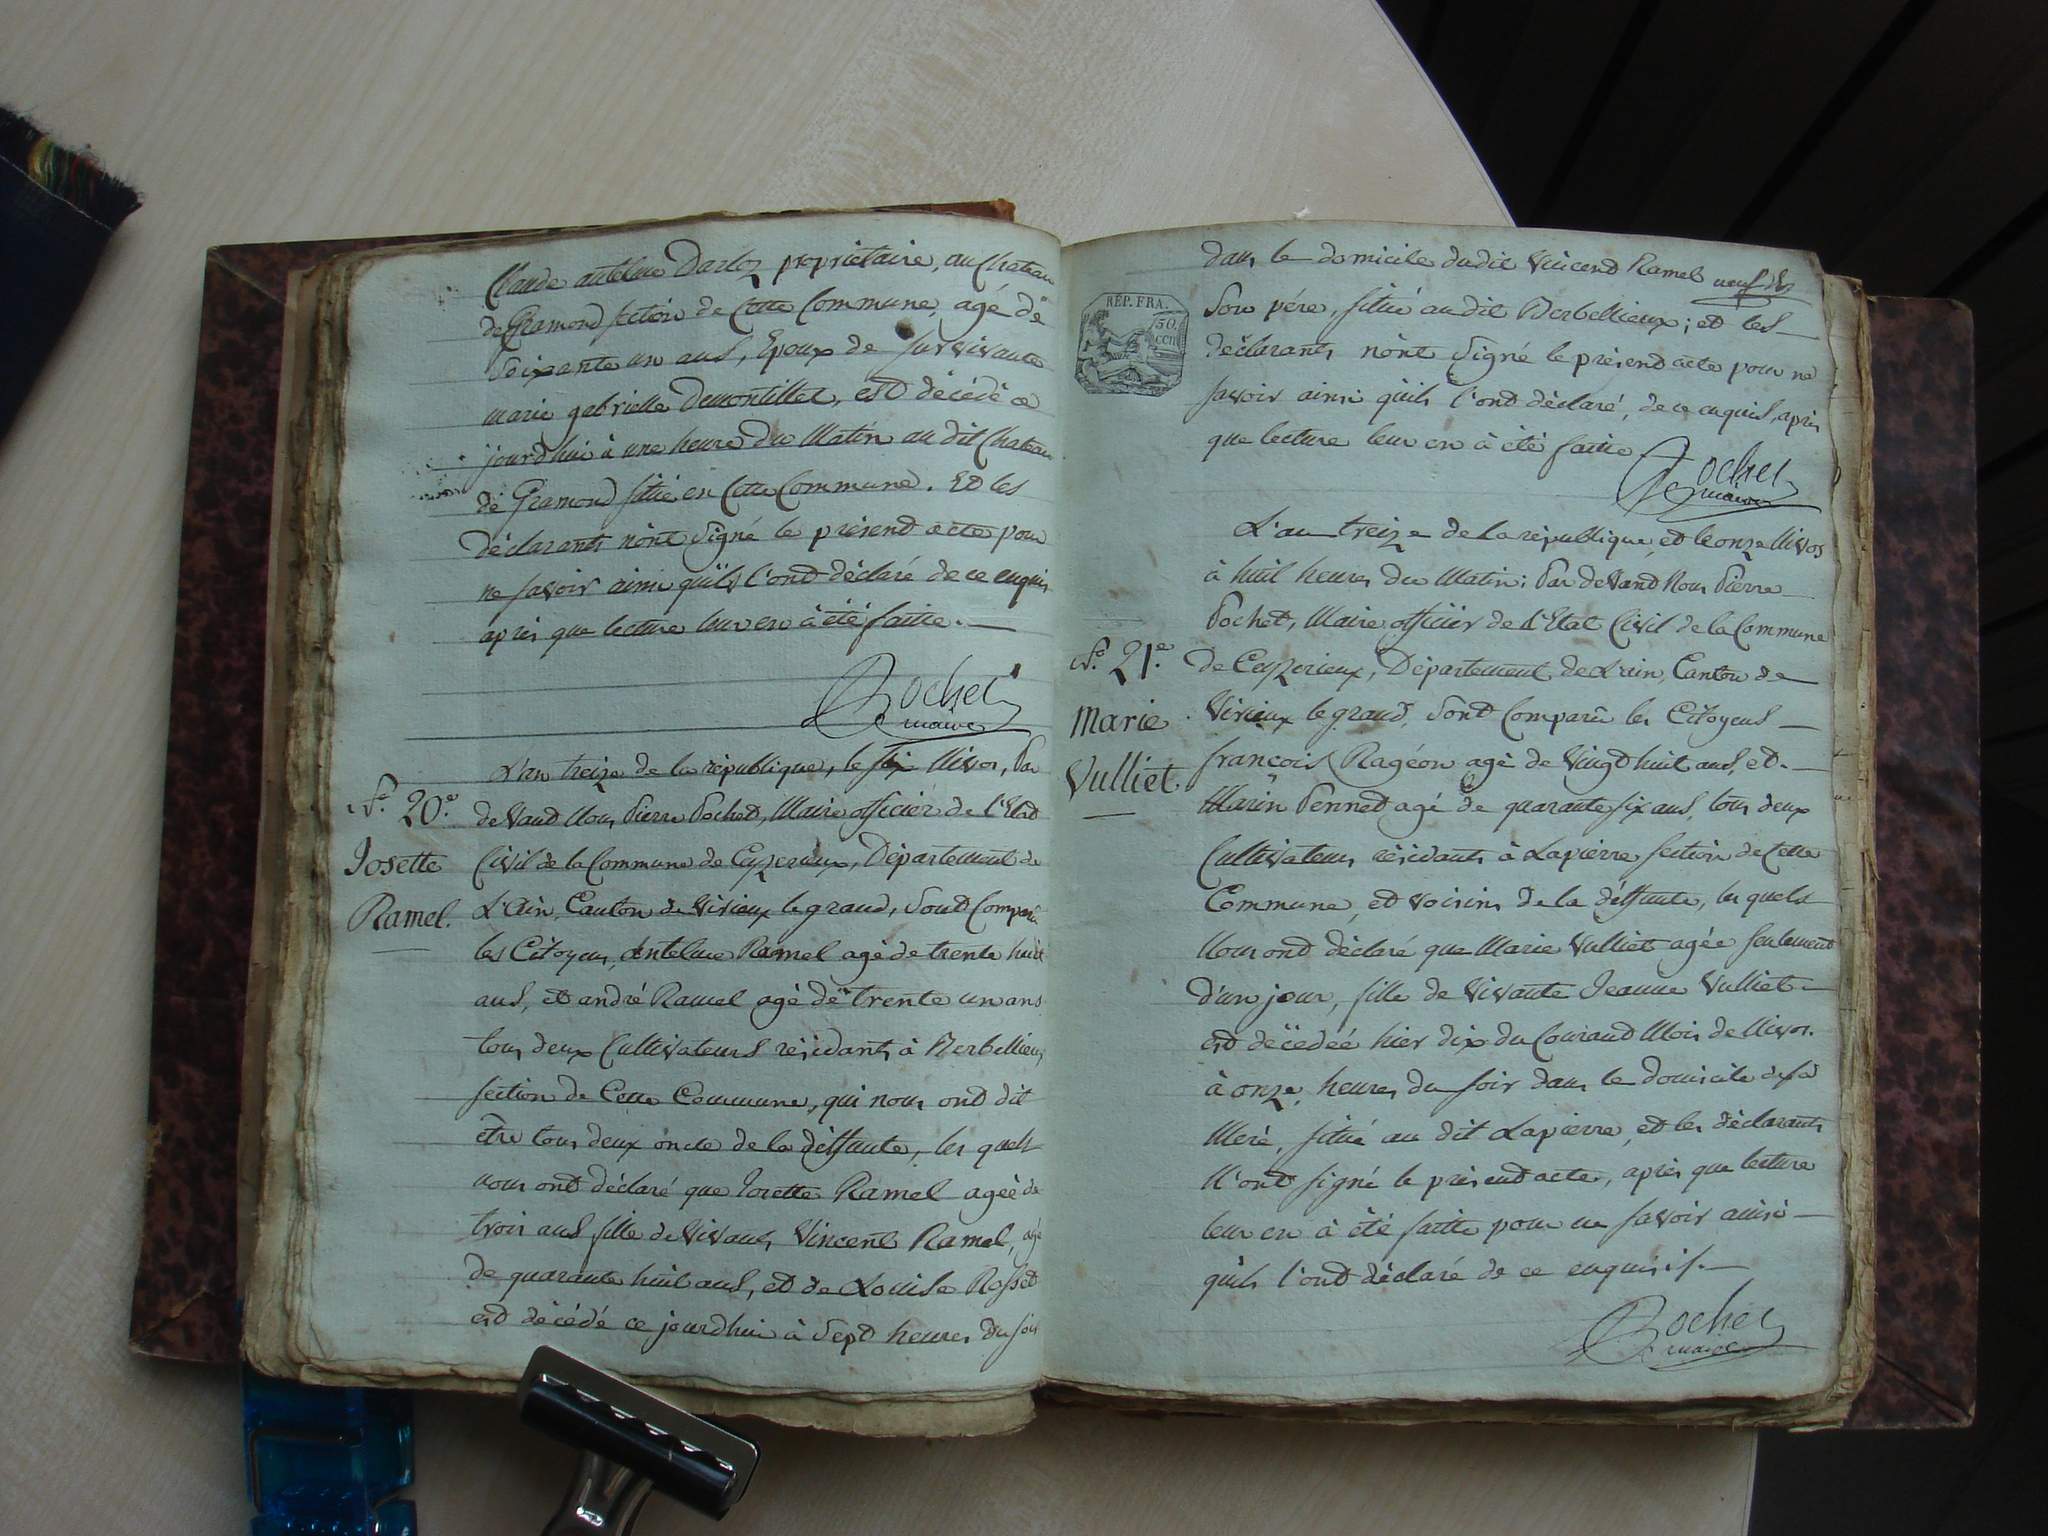 Claude antelme Darloz propriétaire, au Chateau
de Gramond section de Cette Commune, agé de
Soixante un ans, Epoux de survivante
marie gabrielle Demontillet, est décédé ce
jourdhui à une heure du Matin au dit Chateau
de Gramond situé en Cette Commune. Et les
déclarants n'ont Signé le présend acte pour
ne savoir ainsi quils l'ond déclaré de ce enquis
après que lecture leur en à été faitte.
Pochet
maire
N.º 20.e
Josette
Ramel.
L'an treize de la république, le six Nivos, Par
devand Nous Pierre Pochet, Maire officier de l'Etat
Civil de la Commune de Ceyzerieux, Département de
L'Ain, Canton de Virieux legrand, Sont Comparu
les Citoyens, Antelme Ramel agé de trente huit
ans, et andré Ramel agé de trente un ans
tous deux Cultivateurs résidants à Berbellieux
section de Cette Commune, qui nous ond dit
être tous deux oncle de la déffunte, les quels
nous ond déclaré que Josette Ramel agée de
trois ans fille de vivants Vincent Ramel, agé
de quarante huit ans, et de Louise Rosset
est décédé ce jourdhui à Sept heures du soir
RÉP. FRA.
50.
CEN
dans le domicile dudit Vincend Ramel
Son pére, situé au dit Berbellieux; et les
déclarants n'ont Signé le présend acte pour ne
savoir ainsi quils l'ond déclaré, de ce enquis, après
que lecture leur en à été faitte
Pochet
maire
L'an treize de la république, et le onze Nivos
à huit heures du Matin; Par devand Nous Pierre
Pochet, Maire officier de L'Etat Civil de la Commune
N.º 21.e
Marie
Vulliet
de Ceyzerieux, Département de L'ain, Canton de
Virieux legrand, Sont Comparu les Citoyens
françois Ragéon agé de Vingt huit ans, et
Marin Pennet agé de quarante six ans, tous deux
Cultivateurs résidants à Lapierre section de Cette
Commune, et voisins de la déffunte, les quels
Nous ond déclaré que Marie Vulliet agée seulement
d'un jour, fille de vivante Jeanne Vulliet
est décédée hier dix du Courand Mois de Nivos.
à onze heures du soir dans le domicile de sa
Mere, situé au dit Lapierre, et les déclarants
N'ont signé le présend acte, après que lecture
leur en à été faitte pour ne savoir ainsi
quils l'ond déclaré de ce enquis.
Pochet
maire